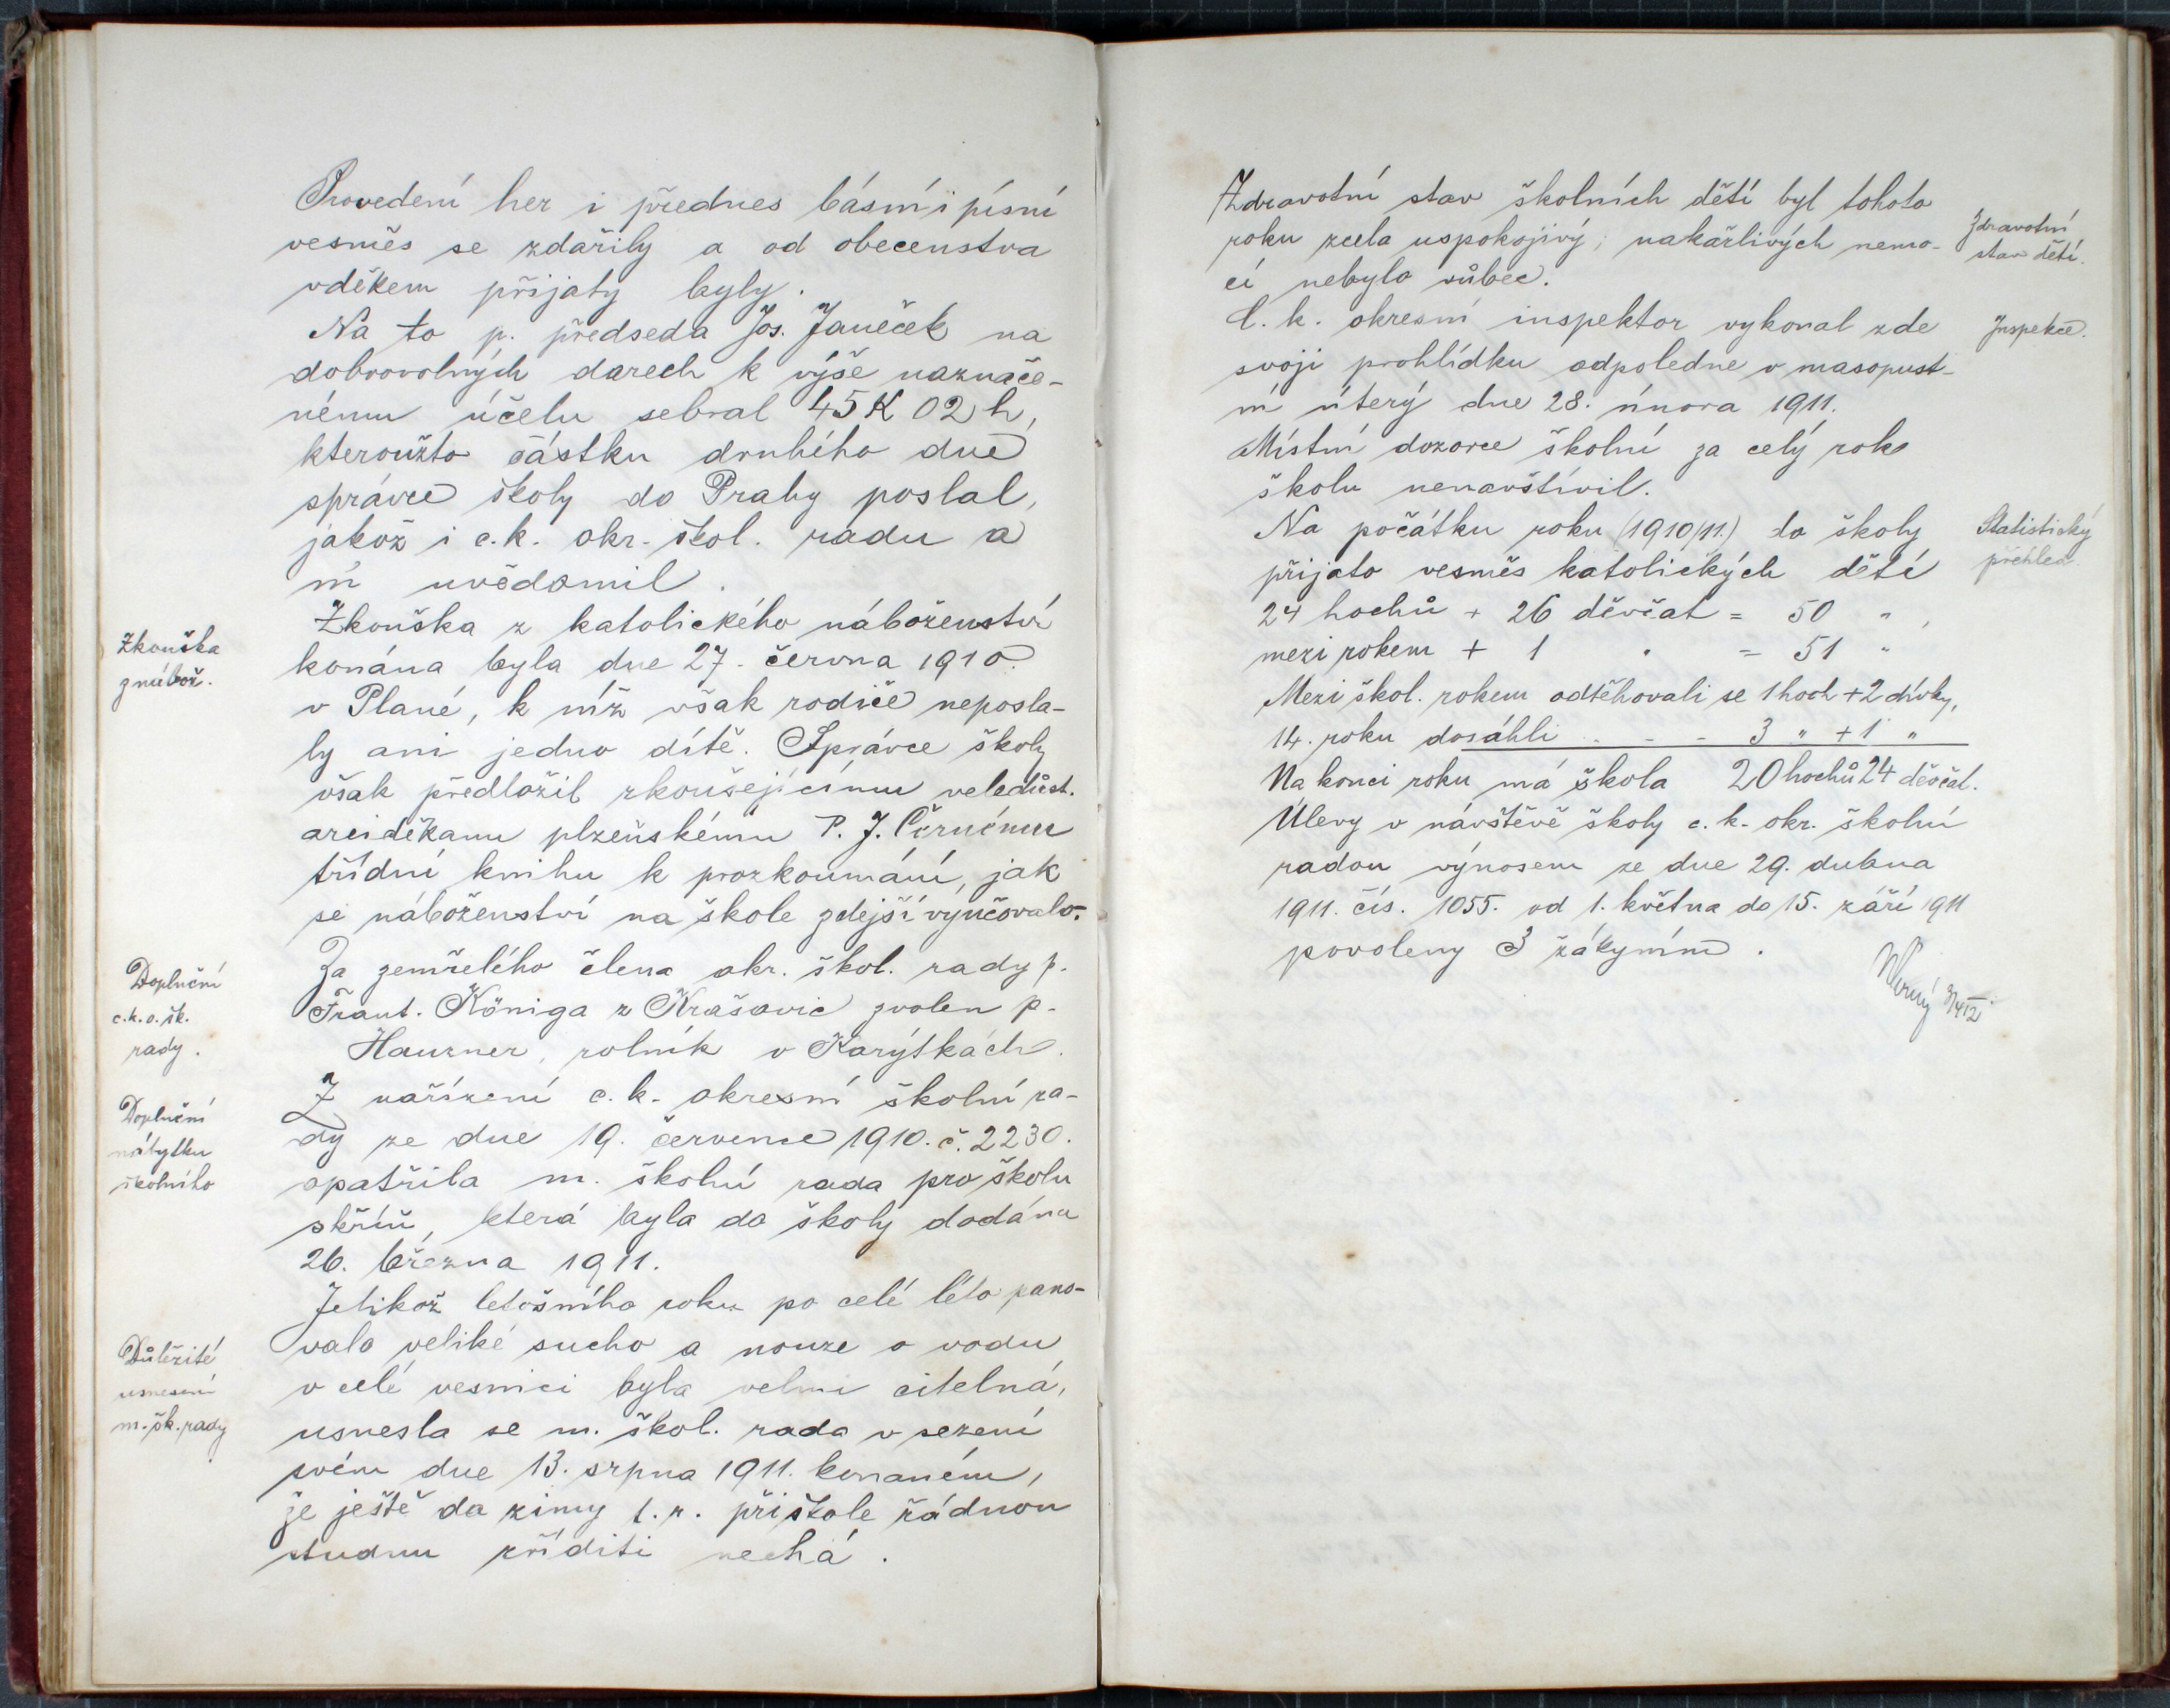 Provedení her i přednes básní i písní
vesměs se zdařily a od obecenstva
vděkem přijaty byly.
Na to p. předseda Jos. Janeček na
dobrovolných darech k výše naznače-
nému účelu sebral 45 K 02 h,
kteroužto částku druhého dne
správce školy do Prahy poslal,
jakož i c. k. okr. škol. radu o
ní uvědomil.
Zkouška
z nábož.
Zkouška z katolického náboženství
konána byla dne 27. června 1910.
v Plané, k níž však rodiče neposla-
ly ani jedno dítě. Správce školy
však předložil zkoušejícímu veledůst.
arciděkanu plzeňskému P. J. Černému
třídní knihu k prozkoumání, jak
se náboženství na škole zdejší vyučovalo.
Doplnění
c. k. o. šk.
rady.
Za zemřelého člena okr. škol. rady p.
Frant. Königa z Krašovic zvolen p.
Hauzner, rolník v Karýtkách.
Doplnění
nábytku
školního
Z nařízení c. k. okresní školní ra-
dy ze dne 19. července 1910. č. 2230.
opatřila m. školní rada pro školu
skříň, která byla do školy dodána
26. března 1911.
Důležité
usnesení
m. šk. rady
Jelikož letošního roku po celé léto pano-
valo veliké sucho a nouze o vodu
v celé vesnici byla velmi citelná,
usnesla se m. škol. rada v sezení
svém dne 13. srpna 1911. konaném,
že ještě do zimy t. r. při škole řádnou
studnu zříditi nechá.
Zdravotní stav školních dětí byl tohoto
roku zcela uspokojivý; nakažlivých nemo-
cí nebylo vůbec.
Zdravotní
stav dětí.
C. k. okresní inspektor vykonal zde
svoji prohlídku odpoledne v masopust-
ní úterý dne 28. února 1911.
Inspekce.
Místní dozorce školní za celý rok
školu nenavštívil.
Na počátku roku (1910/11.) do školy
přijato vesměs katolických dětí
Statistický
přehled.
24 hochů + 26 děvčat = 50 " ,
mezi rokem + 1 " = 51 "
Mezi škol. rokem odstěhovali se 1 hoch + 2 dívky,
14. roku dosáhli - - - 3 " + 1 "
Na konci roku má škola 20 hochů 24 děvčat.
Úlevy v návštěvě školy c. k. okr. školní
radou výnosem ze dne 29. dubna
1911. čís. 1055. od 1. května do 15. září 1911
povoleny 3 žákyním.